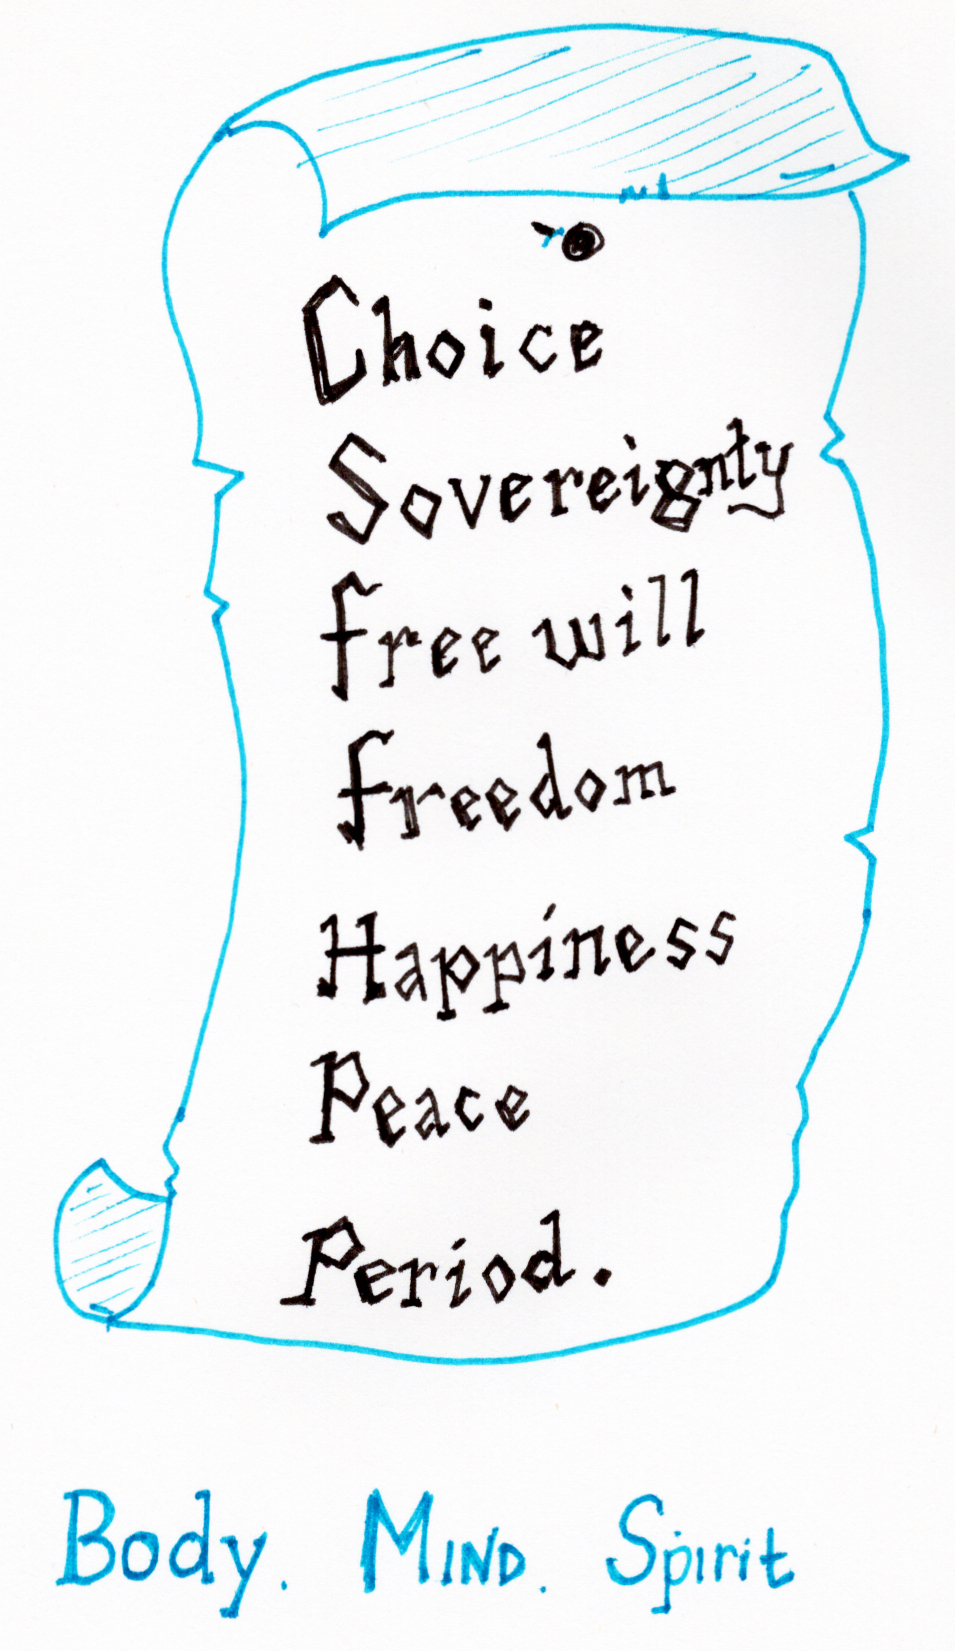 Choice
Sovereignty
free will
freedom
Happiness
Peace
Period.
Body. MIND. Spirit